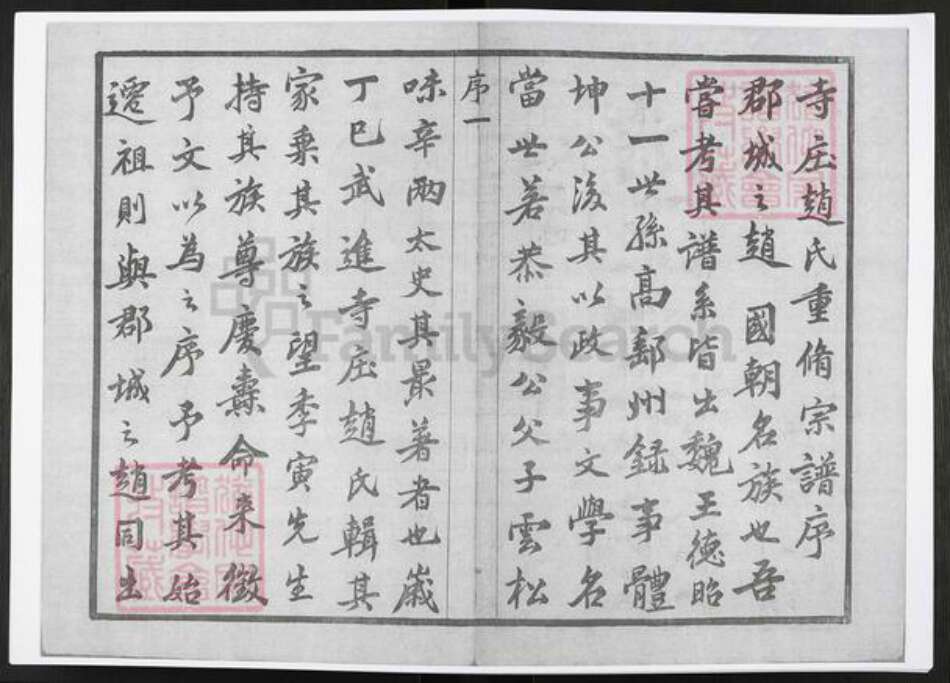 寺庄趙氏重脩宗譜序
郡城之趙 國朝名族也吾
嘗考其譜系皆出魏王德昭
十一世孫高郵州録事體
坤公後其以政事文學名
當世若恭毅公父子雲松
序一
味辛兩太史其最著者也嵗
丁巳武進寺庄趙氏輯其
家乘其族之望季寅先生
持其族尊慶燾命来徵
予文以為之序予考其始
遷祖則與郡城之趙同出
FamilySearch